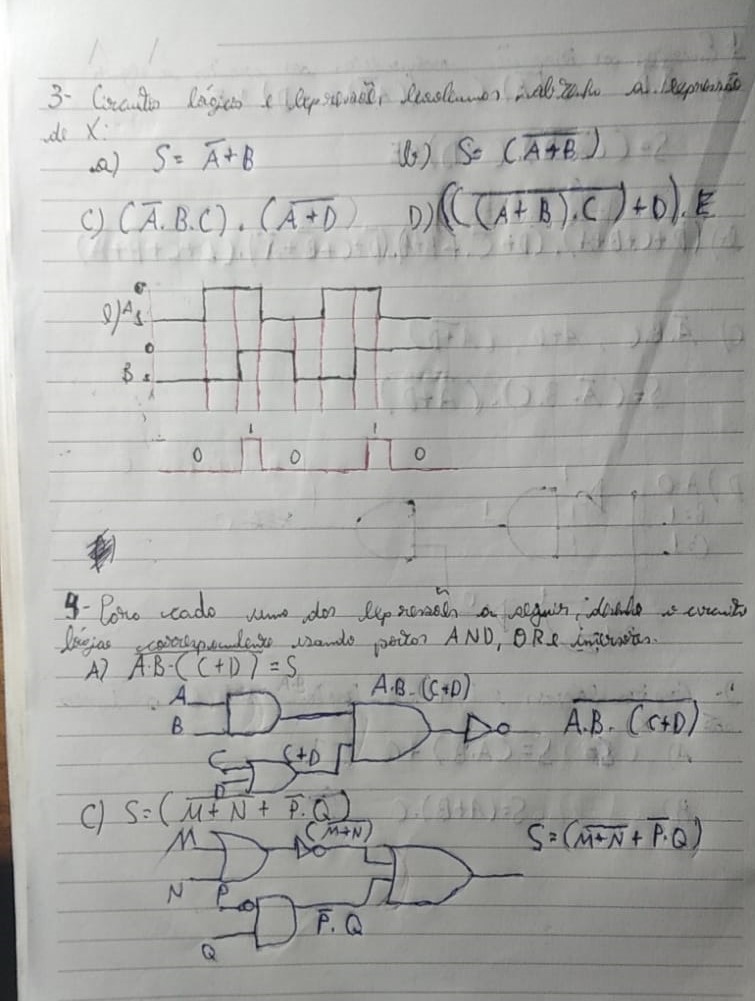 3- Circuitos lógicos e expressões, resolvemos obtenha a expressão
de X:
a) S = A̅+B b) S= (A̅+̅B̅)
C) (A̅.B.C) . (A̅+̅D̅) D) (((̅A̅+̅B̅)̅.̅C̅)+D).E
A
B
0 1 0 1 0
4- Para cada uma das expressões a seguir, desenhe o circuito
lógico correspondente usando portas AND, OR e inversores.
A) A̅.̅B̅.̅(̅C̅+̅D̅)̅ = S
A.B.(C+D)
A
B
A̅.̅B̅.̅(̅C̅+̅D̅)̅
C C+D
D
C) S=(M̅+̅N̅ + P̅.Q)
M (M̅+̅N̅)
S=(M̅+̅N̅ + P̅.Q)
N P
P̅.Q
Q